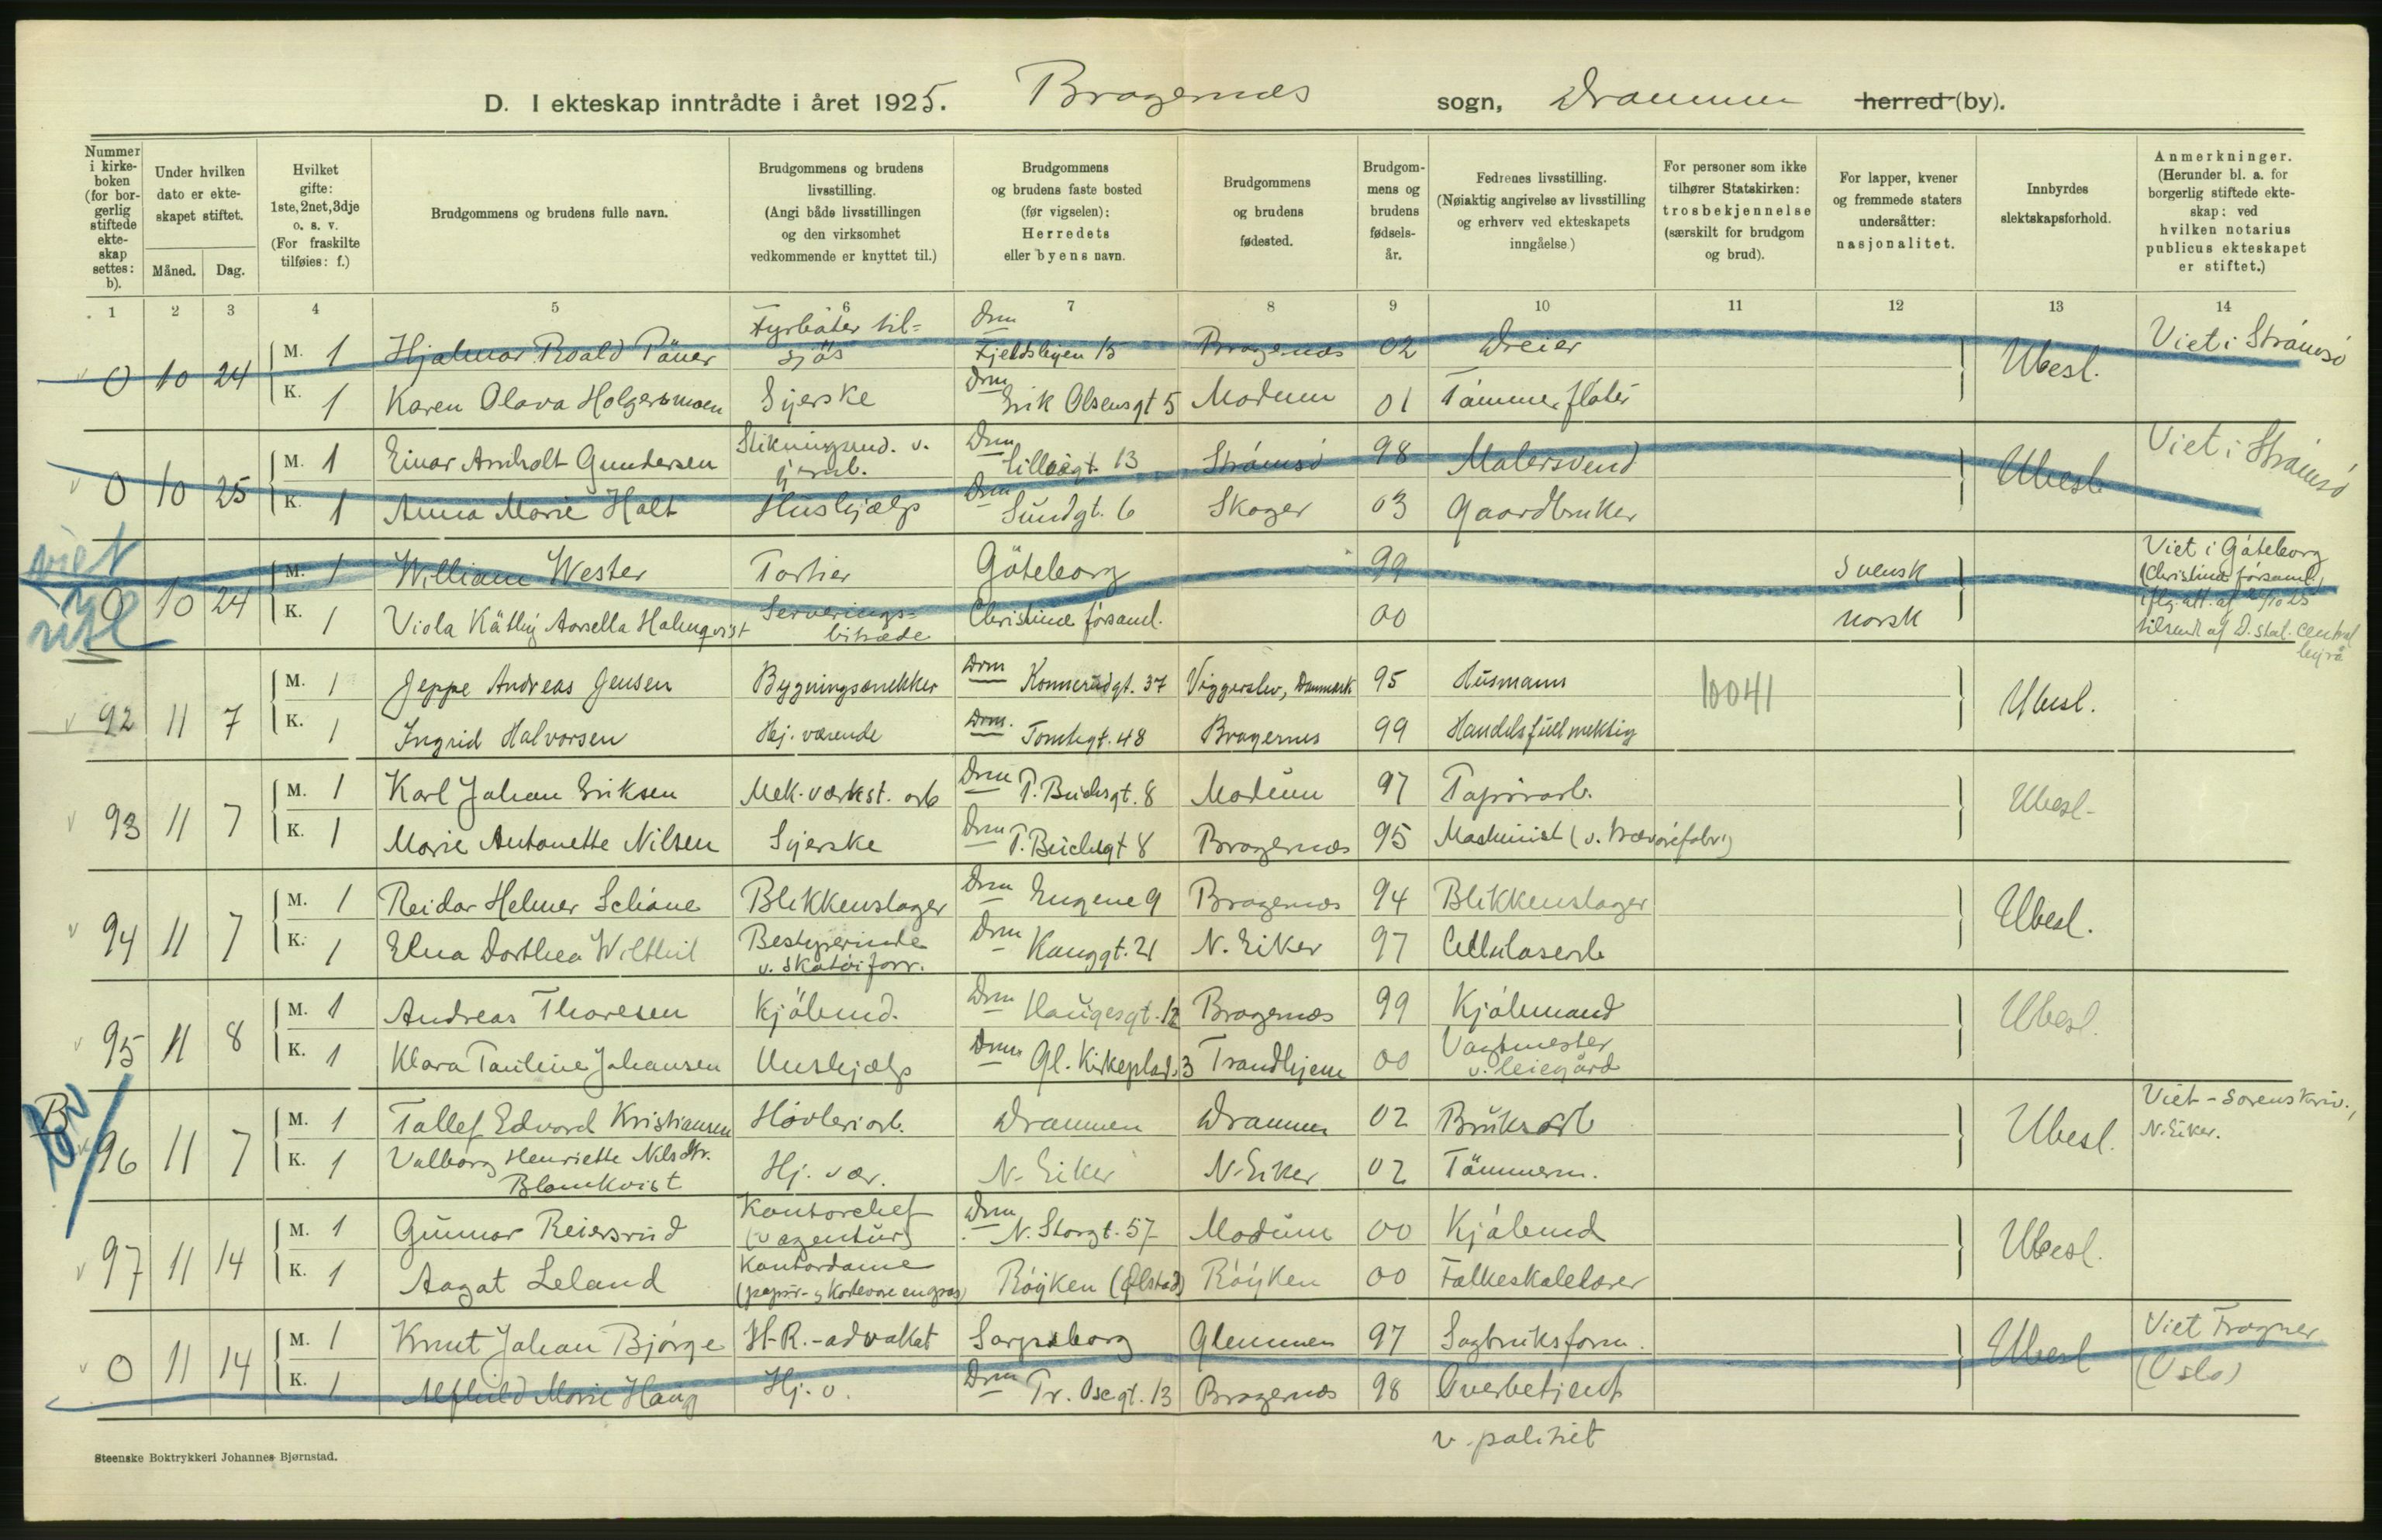 D. I ekteskap inntrådte i året 1925. Bragernes sogn, Drammen herred (by).
Nummer i kirkeboken (for borgerlig stiftede ekteskap settes: b).
Under hvilken dato er ekteskapet stiftet.
Måned. Dag.
Hvilket gifte: 1ste, 2net, 3dje o. s. v. (For fraskilte tilføies: f.)
Brudgommens og brudens fulle navn.
Brudgommens og brudens livsstilling. (Angi både livsstillingen og den virksomhet vedkommende er knyttet til.)
Brudgommens og brudens faste bosted (før vigselen): Herredets eller byens navn.
Brudgommens og brudens fødested.
Brudgommens og brudens fødselsår.
Fedrenes livsstilling. (Nøiaktig angivelse av livsstilling og erhverv ved ekteskapets inngåelse)
For personer som ikke tilhører Statskirken: trosbekjennelse (særskilt for brudgom og brud).
For lapper, kvener og fremmede staters undersåtter: nasjonalitet.
Innbyrdes slektskapsforhold.
Anmerkninger. (Herunder bl. a. for borgerlig stiftede ekteskap: ved hvilken notarius publicus ekteskapet er stiftet.)
1 2 3 4 5 6 7 8 9 10 11 12 13 14
0 10 24 M. 1 Hjalmar Roald Fyrbøter til= sjøs Drm Fjeldslyen 15 Bragernæs 02 Dreier Ubesl. Viet i Strømsø
K. 1 Karen Olava Holgersmoen Syerske Drm Erik Olsensgt 5 Modum 01 Tømmerfløter
0 10 25 M. 1 Einar Arnholt Gundersen v. jernb. Drm Lilløigt. 13 Strømsø 98 Malersvend Ubesl Viet i Strømsø
K. 1 Anna Marie Holt Hushjælp Drm Sundgt. 6 Skoger 03 Gaardbruker
viet
0 10 24 M. 1 William Wester Portier Göteborg 99 Svensk Viet i Göteborg (Christine församl.) iflg. att. af 24/10 25
K. 1 Viola Käthy Aorsella Holmqvist Serverings= bitræde Christine församl. 00 norsk tilsendt af D. stat. centralbyrå
92 11 7 M. 1 Jeppe Andreas Jensen Bygningssnekker Drm Konnerudgt. 37 Viggerslev, Danmark 95 Husmann 10041 Ubesl.
K. 1 Ingrid Halvorsen Hj. værende Drm. Tomtegt. 48 Bragernes 99 Handelsfullmektig
93 11 7 M. 1 Karl Johan Eriksen Mek. værkst. arb Drm P. Buchsgt. 8 Modum 97 Papirarb. Ubesl.
K. 1 Marie Antonette Nilsen Syerske Drm P. Buchsgt 8 Bragernæs 95 Maskinist (v. trævarefabr.)
94 11 7 M. 1 Reidar Helmer Schøne Blikkenslager Drm Engene 9 Bragernæs 94 Blikkenslager Ubesl.
K. 1 Elna Dorthea Wilthil Bestyrerinde v. skotøiforr. Drm Kanggt. 21 N. Eiker 97 Cellulosearb
95 11 8 M. 1 Andreas Thoresen Kjøbmd. Drm Haugesgt. 12 Bragernæs 99 Kjøbmand Ubesl.
K. 1 Klara Pauline Johansen Hushjælp Drm Gl. Kirkeplads 3 Trondhjem 00 Vagtmester v. leiegård
96 11 7 M. 1 Tollef Edvard Kristiansen Høvleriarb. Drammen Drammen 02 Bruksarb Ubesl. Viet - Sorenskriv., N. Eiker.
K. 1 Valborg Henriette Nilsdtr. Blomkvist Hj. vær. N. Eiker N. Eiker 02 Tømmerm.
97 11 14 M. 1 Gunnar Reiersrud Kontorchef (v agentur) Drm N. Storgt. 57 Modum 00 Kjøbmd Ubesl.
K. 1 Aagot Leland Kontordame (papir- & kortevare engros) Røyken (Ølstad) Røyken 00 Folkeskolelærer
0 11 14 M. 1 Knut Johan Bjørge H-R.-advokat Sarpsborg Glemmen 97 Sagbruksform. Ubesl Viet Frogner (Oslo)
K. 1 Alfhild Marie Haug Hj. v. Drm Tr. Osegt. 13 Bragernæs 98 Overbetjent
v. politiet
Steenske Boktrykkeri Johannes Bjørnstad.